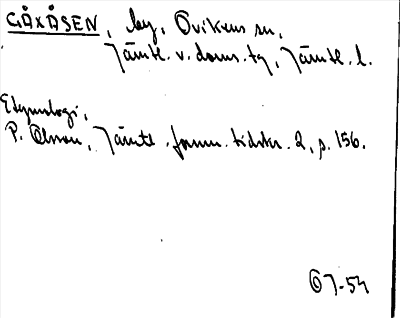 GÅXÅSEN, by, Ovikens sn,
Jämtl. v. doms. tg, Jämtl. l.
Etymologi,
P. Olsson, Jämtl. fornm. tidskr. 2, s. 156.
OJ-54